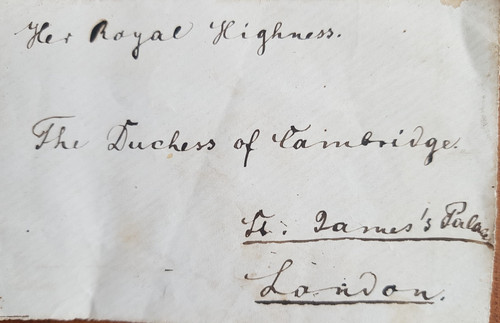 Her Royal Highness.
The Duchess of Cambridge.
St. James's Palace
London.